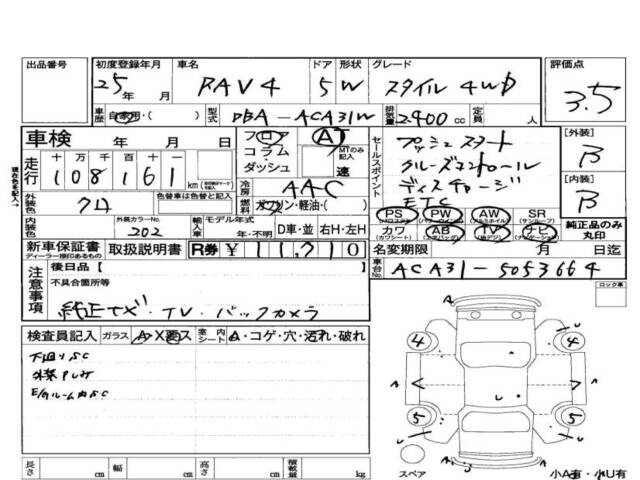 出品番号 初度登録年月 車名 ドア 形状 グレード 評価点
25年 月 RAV4 5 W スタイル 4WD 3.5
車歴 自家用・( ) 型式 DBA-ACA31W 排気量 2400 cc 定員 人
車検 年 月 日
フロア AT
コラム
ダッシュ
MTのみ記入
速
セールスポイント
プッシュスタート
クルーズコントロール
ディスチャージ
ETC
[外装]
B
[内装]
B
現在の名を記入→
走行 十 万 千 百 十 一
108161 km
冷房 AAC
外装色 クロ 色替車は色替と記入
燃料 ガソリン・軽油・( )
内装色 外装カラーNo. 202 輸入車 モデル年式 年・不明 D車・並 右H・左H
PS PW AW SR
(パワステ) (パワーウィンド) (アルミホイル) (サンルーフ)
カワ AB TV ナビ
(カワシート) (エアバッグ) (テレビ) (ナビゲーション)
純正品のみ丸印
新車保証書 取扱説明書 R券 ¥11,710
ディーラー捺印あるもの
名変期限 月 日迄
車台No. ACA31-5053664
ロック車
注意事項
後日品【
不具合箇所等
純正ナビ・TV・バックカメラ
検査員記入 ガラス A・X 室内シート A・コゲ・穴・汚れ・破れ
下廻りSC
E/GルームカSC
4 4
5 5
スペア
小A有・小U有
長さ cm 幅 cm 高さ cm 積載量 kg